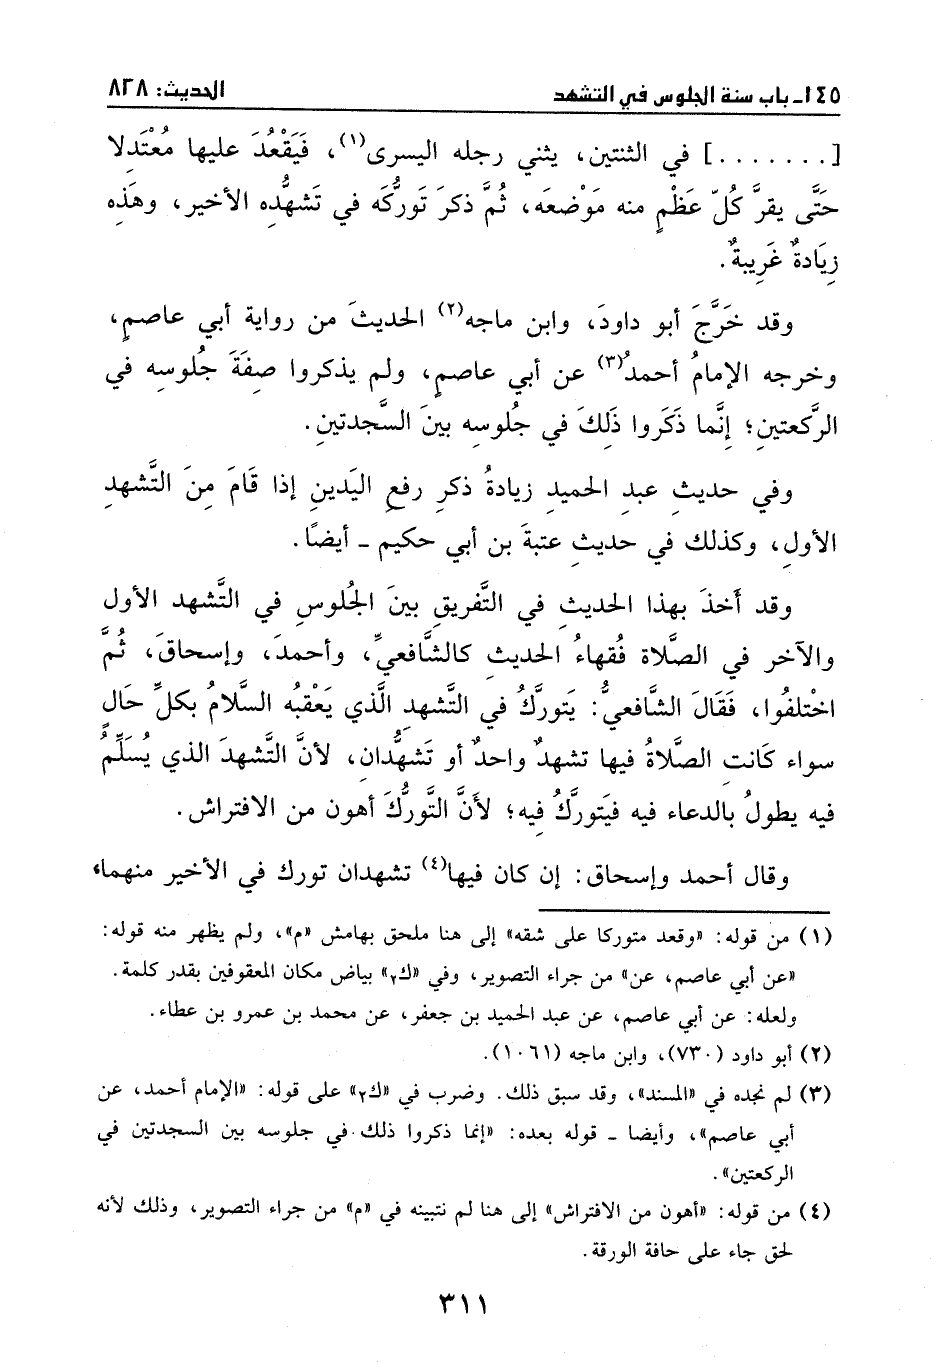 ١٤٥ـ باب سنة الجلوس في التشهد
الحديث: ٨٢٨
[.......] في الثنتين، يثني رجله اليسرى(١)، فَيَقْعُدَ عليها مُعْتَدلا
حَتَّى يقرَّ كُلّ عَظْمٍ منه مَوْضعَه، ثُمَّ ذكرَ تَورُّكَه في تَشهُّدِه الأخير، وهَذِه
زِيَادةٌ غَرِيبةٌ.
وقد خَرَّجَ أبو داودَ، وابن ماجه(٢) الحديثَ من رواية أبي عاصمٍ،
وخرجه الإمامُ أحمدُ(٣) عن أبي عاصمٍ، ولم يذكروا صِفَةَ جُلوسِه في
الرَّكعتينِ؛ إِنَّما ذَكَروا ذَلِكَ في جُلوسِه بينَ السَّجدتينِ.
وفي حديثِ عبدِ الحميدِ زيادةُ ذكرِ رفعِ اليَدينِ إذا قَامَ مِنَ التَّشهدِ
الأولِ، وكذلك في حديثِ عتبةَ بن أبي حكيم ـ أيضًا.
وقد أَخذَ بهذا الحديثِ في التَّفريقِ بينَ الجُلوسِ في التَّشهد الأول
والآخر في الصَّلاة فُقهاءُ الحديث كالشَّافعيِّ، وأحمدَ، وإسحاقَ، ثُمَّ
اخْتلفُوا، فَقَالَ الشَّافعيُّ: يَتورَّكُ في التَّشهد الَّذي يَعْقبُه السَّلامُ بكلِّ حَالٍ
سواء كَانت الصَّلاةُ فيها تشهدٌ واحدٌ أو تَشهُّدانِ، لأنَّ التَّشهدَ الذي يُسَلِّمُ
فيه يطولُ بالدعاء فيه فيَتوركُ فِيه؛ لأَنَّ التَّورُّكَ أهون من الافتراش.
وقال أحمد وإسحاق: إن كان فيها(٤) تشهدان تورك في الأخير منهما،
(١) من قوله: «وقعد متوركا على شقه» إلى هنا ملحق بهامش «م»، ولم يظهر منه قوله:
«عن أبي عاصم، عن» من جراء التصوير، وفي «ك٢» بياض مكان المعقوفين بقدر كلمة.
ولعله: عن أبي عاصم، عن عبد الحميد بن جعفر، عن محمد بن عمرو بن عطاء.
(٢) أبو داود (٧٣٠)، وابن ماجه (١٠٦١).
(٣) لم نجده في «المسند»، وقد سبق ذلك. وضرب في «ك٢» على قوله: «الإمام أحمد، عن
أبي عاصم»، وأيضا ـ قوله بعده: «إنما ذكروا ذلك في جلوسه بين السجدتين في
الركعتين».
(٤) من قوله: «أهون من الافتراش» إلى هنا لم نتبينه في «م» من جراء التصوير، وذلك لأنه
لحق جاء على حافة الورقة.
٣١١